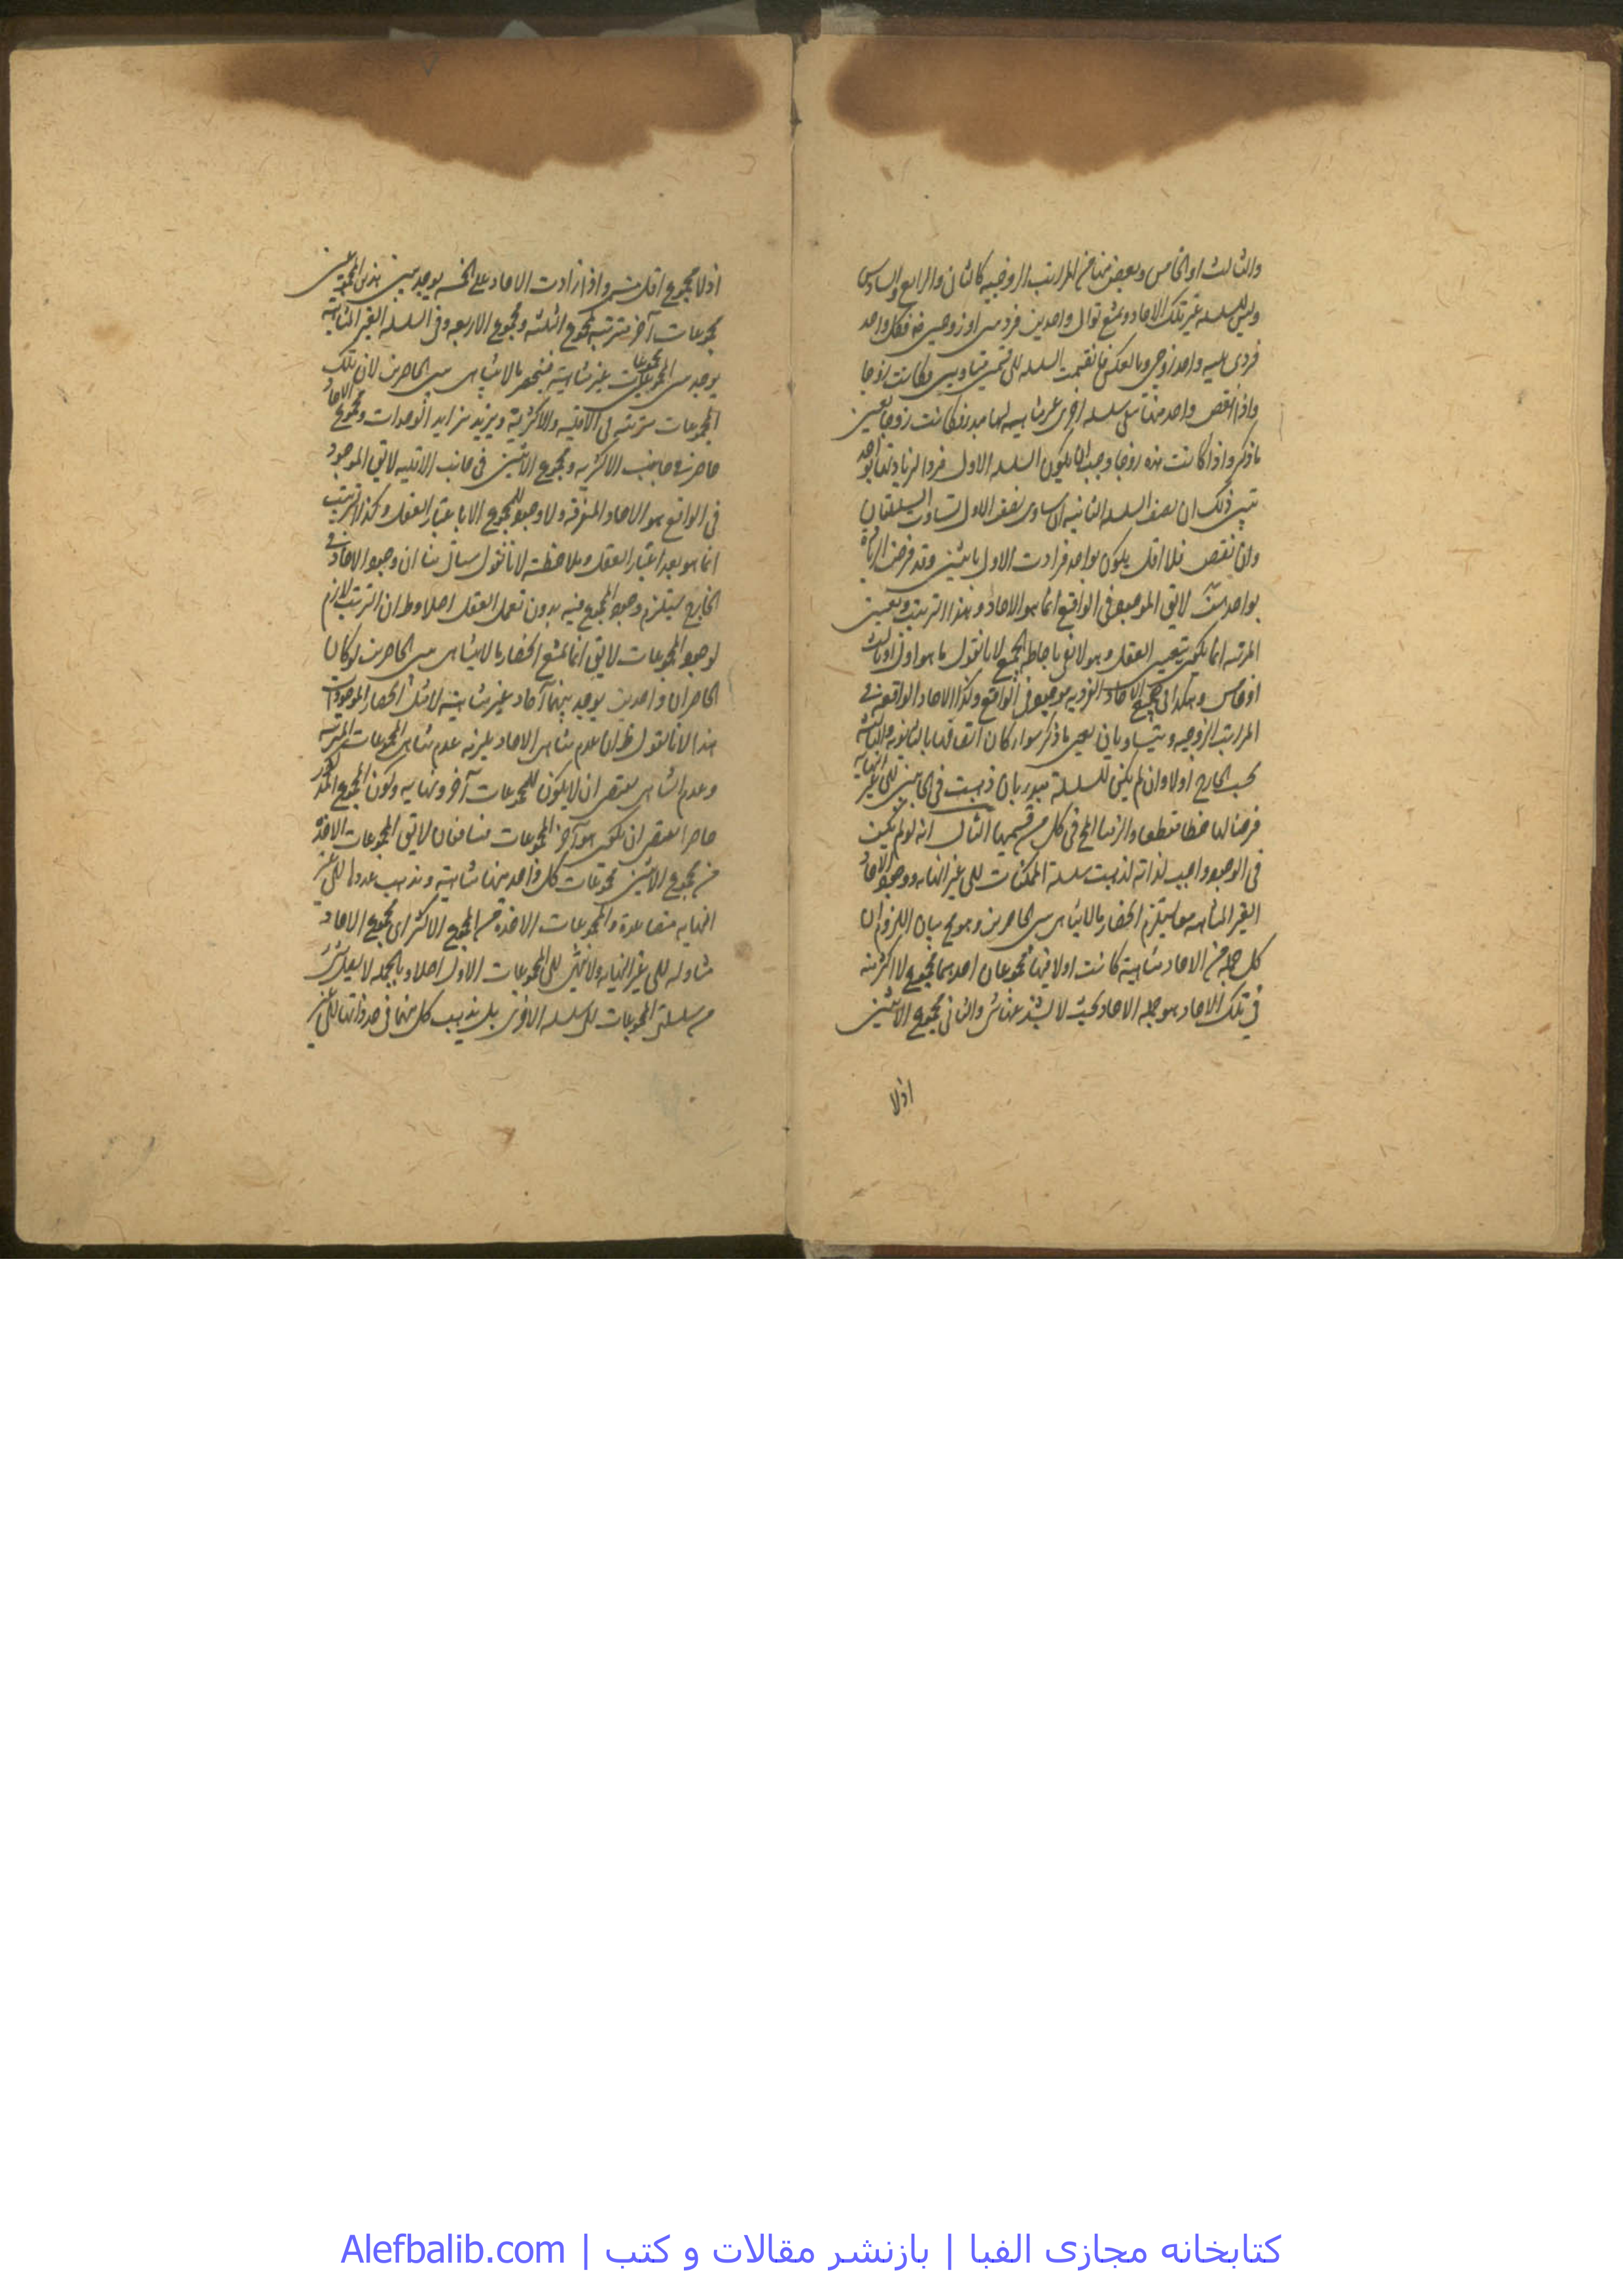 والثالث او الخامس وبعض منها من المراتب الزوجيه كالثانى والرابع والسادس
وليس للسلسله غير تلك الاحاد ويمتنع توالى واحدين فرديين او زوجيين فكل واحد
فردى يليه واحد زوجى وبالعكس فانقسمت السلسله الى قسمين متساويين فكانت زوجا
واذا نقص واحد منها تبقى سلسله اخرى غير متناهيه لها مبدء فكانت زوجا بعين
ما ذكر واذا كانت هذه زوجا وجب ان يكون السلسله الاولى فردا لزيادتها بواحد
ذلك ان نصف السلسله الثانيه ان ساوى نصف الاولى تساوت السلسلتان
وان نقص فلا اقل يكون بواحد فزادت الاولى باثنين وقد فرضت الزيادة
بواحد لا يق الموجود فى الواقع انما هو الاحاد وهذا الترتيب وتعيين
المرتبه انما يكون بتعيين العقل وهو لا يفى باحاطة الجميع لانا نقول ما هو اول او ثالث
او خامس وهكذا الى جميع الاحاد الفرديه موجود فى الواقع وكذا الاحاد الواقعه فى
المراتب الزوجيه ويتساويان بعين ما ذكر سواء كان اتصافها بالثانويه والثالثيه
بحسب الخارج او لا وان لم يكن للسلسلة مبدء بان ذهبت فى الجانبين الى غير النهايه
فرضنا لها خطا منقطعا والزمنا الخ فى كل من قسميها الثالث انه لو لم يكن
فى الوجود واجب لذاته لذهبت سلسلة الممكنات الى غير النهايه ووجود الاحاد
الغير المتناهيه معا يستلزم انحصار ما لا يتناهى بين الحاصرين وهو مح بيان اللزوم ان
كل جمله من الاحاد متناهية كانت او لا فيها مجموعان احدهما مجموع لا اكثر منه
فى تلك الاحاد هو جمله الاحاد بحيث لا يشذ عنها شئ والثانى مجموع الاثنين
اذ لا
اذ لا مجموع اقل منه واذا زادت الاحاد على الخمسه يوجد بين هذين المجموعين
مجموعات آخر مترتبه كمجموع الثلثه ومجموع الاربعه وفى السلسله الغير المتناهيه
يوجد بين المجموعين مجموعات غير متناهية فينحصر ما لا يتناهى بين الحاصرين لان تلك
المجموعات مترتبه فى الاقليه والاكثرية ويزيد بتزايد الوحدات ومجموع الاحاد
حاصر فى جانب الاكثريه ومجموع الاثنين فى جانب الاقليه لا يق الموجود
فى الواقع هو الاحاد المتفرقه ولا وجود للمجموع الا باعتبار العقل وكذا الترتيب
انما هو بعد اعتبار العقل وملاحظته لانا نقول سياتى منا ان وجود الاحاد فى
الخارج يستلزم وجود المجموع فيه بدون تعمل العقل اصلا وظ ان الترتيب لازم
لوجود المجموعات لا يق انما يمتنع انحصار ما لا يتناهى بين الحاصرين لو كان
الحاصران واحدين يوجد بينهما آحاد غير متناهيه لا مثل انحصار الموجودات
هذا لانا نقول ظ ان عدم تناهى الاحاد يلزمه عدم تناهى المجموعات المترتبه
وعدم التناهى يقتضى ان لا يكون للمجموعات آخر ونهايه وكون المجموع المذكور
حاصرا يقتضى ان يكون هو آخر المجموعات متنافيان لا يق المجموعات الاخذة
من مجموع الاثنين مجموعات كل واحد منها متناهية ويذهب عددها الى غير
النهايه متصاعدة والمجموعات الاخذة من المجموع الاكثر اى مجموع الاحاد
متنازله الى غير النهايه ولا ينتهى الى المجموعات الاول اصلا وبالجمله لا يصل شئ
من سلسلتى المجموعات الى السلسله الاخرى بل يذهب كل منهما فى حد ذاتها الى غير
کتابخانه مجازی الفبا | بازنشر مقالات و کتب | Alefbalib.com